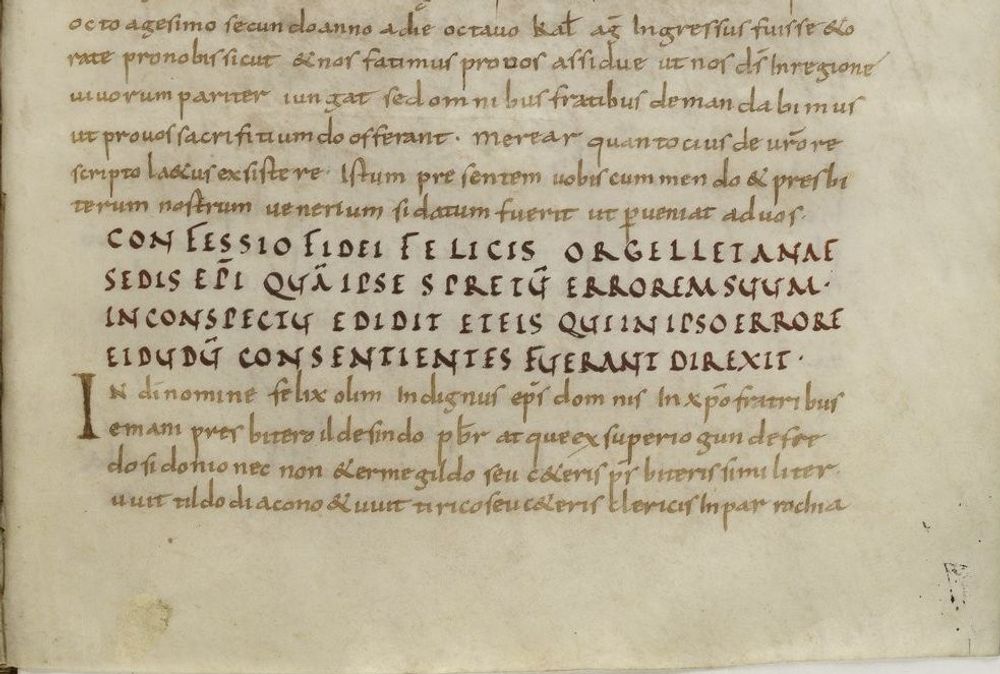 octo agesimo secundo anno a die octavo kal̄ ag̅ Ingressus fuisse &o
rate pro nobis sicut & nos facimus pro vos assidue ut nos dīs In regione
vivorum pariter iungat sed omnibus fratibus demandabimus
ut pro vos sacrifitium do offerant · merear quantocius de vr̄o re
scripto la&us exsistere · Istum presentem vobis cummendo & presbi
terum nostrum venerium si datum fuerit ut ꝑveniat ad vos ·
CONFESSIO FIDEI FELICIS ORGELLETANAE
SEDIS EP̅I QUĀ IPSE SPRETŪ ERROREM SUUM ·
IN CONSPECTU EDIDIT ET EIS QUI IN IPSO ERRORE
EI DUDŪ CONSENTIENTES FUERANT DIREXIT ·
IN dī nomine felix olim Indignus ep̄s domnis In xp̄o fratribus
emani presbitero ildesindo pb̄r atque ex superio gundefre
do sidonio nec non & ermegildo seu c&eris pr̄sbiteris similiter
uuit tildo diacono & uuit tirico seu c&eris clericis In parrochia